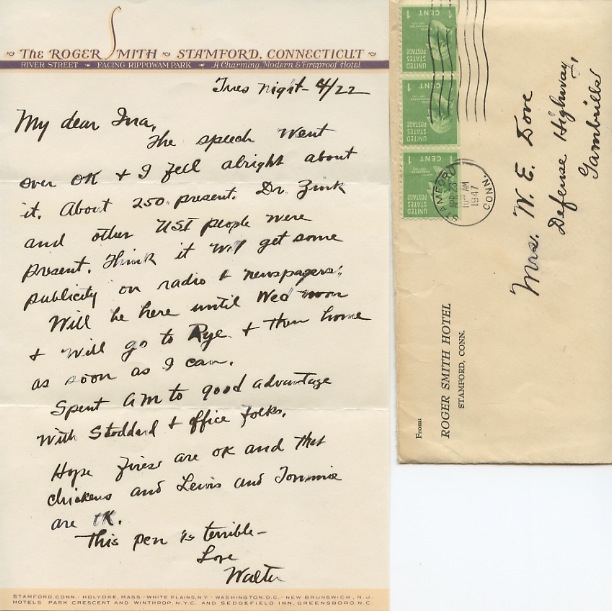 The ROGER SMITH - STAMFORD, CONNECTICUT
RIVER STREET - FACING RIPPOWAM PARK - A Charming, Modern & Fireproof Hotel
Tues night - 4/22
My dear Ina,
The speech went
over OK & I feel alright about
it. About 250 present. Dr. Zink
and other US people were
present. Think it will get some
publicity on radio & newspapers.
Will be here until Wed noon
& will go to Rye & then home
as soon as I can.
Spent AM to good advantage
with Stoddard & office folks.
Hope fires are OK and that
chickens and Lewis and Tommie
are OK.
This pen is terrible -
Love
Walter
STAMFORD, CONN. - HOLYOKE, MASS. - WHITE PLAINS, N.Y. - WASHINGTON, D.C. - NEW BRUNSWICK, N.J.
HOTELS PARK CRESCENT AND WINTHROP, N.Y.C. AND SEDGEFIELD INN, GREENSBORO, N.C.
1 CENT 1
UNITED STATES POSTAGE
1 CENT 1
UNITED STATES POSTAGE
1 CENT 1
UNITED STATES POSTAGE
STAMFORD CONN.
APR 23
AM
1947
Mrs. W. E. Dove
Defense Highway,
Gambrills
From:
ROGER SMITH HOTEL
STAMFORD, CONN.